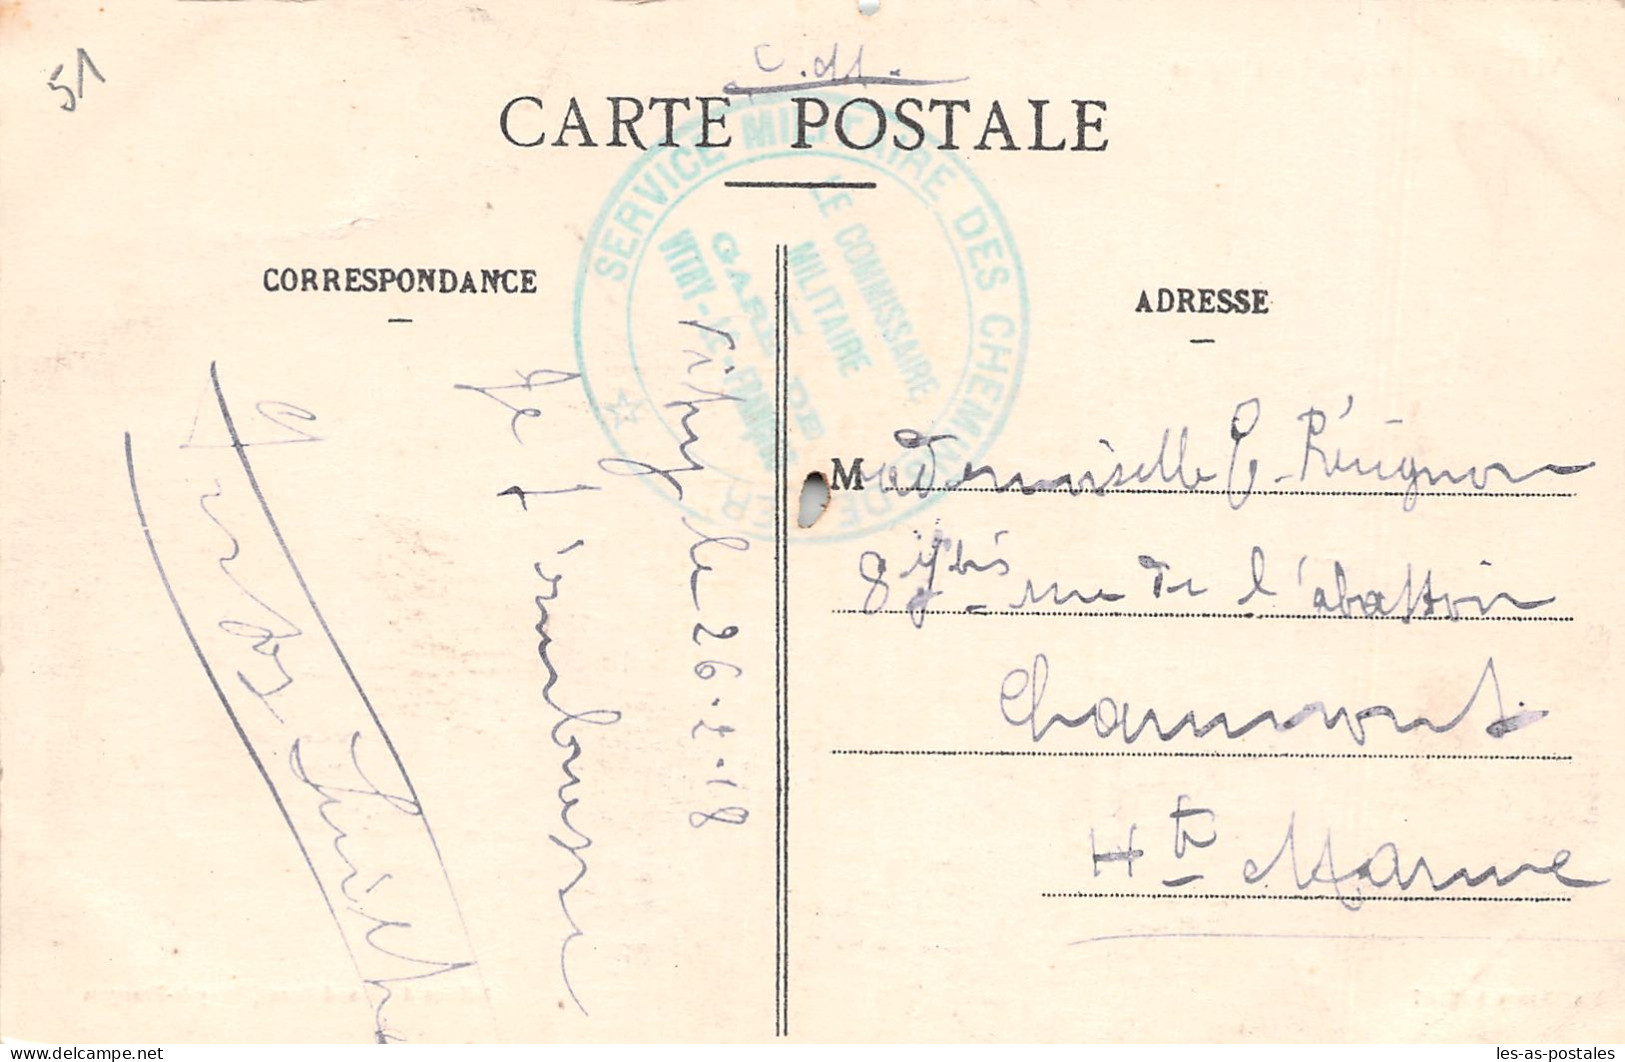 51
C. M.
CARTE POSTALE
SERVICE MILITAIRE DES CHEMINS DE FER
LE COMMISSAIRE
MILITAIRE
GARE DE
VITRY-LE-FRANÇOIS
CORRESPONDANCE
Vitry le 26-2-18
Je t'embrasse
Gros
ADRESSE
Mademoiselle E. Pérignon
8 bis rue de l'abattoir
Chaumont
Hte Marne
les-as-postales